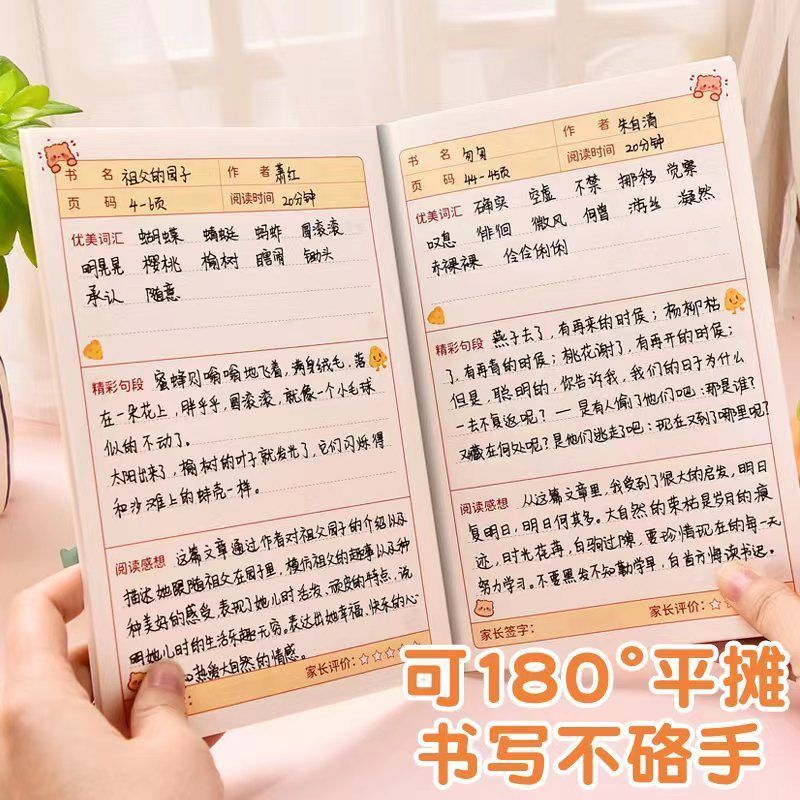 书 名 祖父的园子 作 者 萧红
页 码 4-6页 阅读时间 20分钟
优美词汇 蝴蝶 蜻蜓 蚂蚱 圆滚滚
明晃晃 樱桃 榆树 瞎闹 锄头
承认 随意
精彩句段 蜜蜂则嗡嗡地飞着,满身绒毛,落
在一朵花上,胖乎乎,圆滚滚,就像一个小毛球
似的不动了。
太阳出来了,榆树的叶子就发光了,它们闪烁得
和沙滩上的蚌壳一样。
阅读感想 这篇文章通过作者对祖父园子的介绍以及
描述她跟随祖父在园子里,模仿祖父的趣事以及种
种美好的感受,表现了她儿时活发、顽皮的特点,说
明她儿时的生活乐趣无穷。表达出她幸福、快乐的心
热爱大自然的情感。
家长评价:☆☆☆☆
书 名 匆匆 作 者 朱自清
页 码 44-45页 阅读时间 20分钟
优美词汇 确实 空虚 不禁 挪移 觉察
叹息 徘徊 微风 何曾 游丝 凝然
赤裸裸 伶伶俐俐
精彩句段 燕子去了,有再来的时候;杨柳枯
了,有再青的时候;桃花谢了,有再开的时候。
但是,聪明的,你告诉我,我们的日子为什么
一去不复返呢?—是有人偷了他们吧:那是谁?
又藏在何处呢?是他们逃走了吧:现在又到了哪里呢?
阅读感想 从这篇文章里,我受到了很大的启发,明日
复明日,明日何其多。大自然的荣枯是岁月的痕
迹,时光花苒,白驹过隙,要珍惜现在的每一天
努力学习。不要黑发不知勤学早,白首方悔读书迟。
家长签字: 家长评价:☆
可180°平摊
书写不硌手